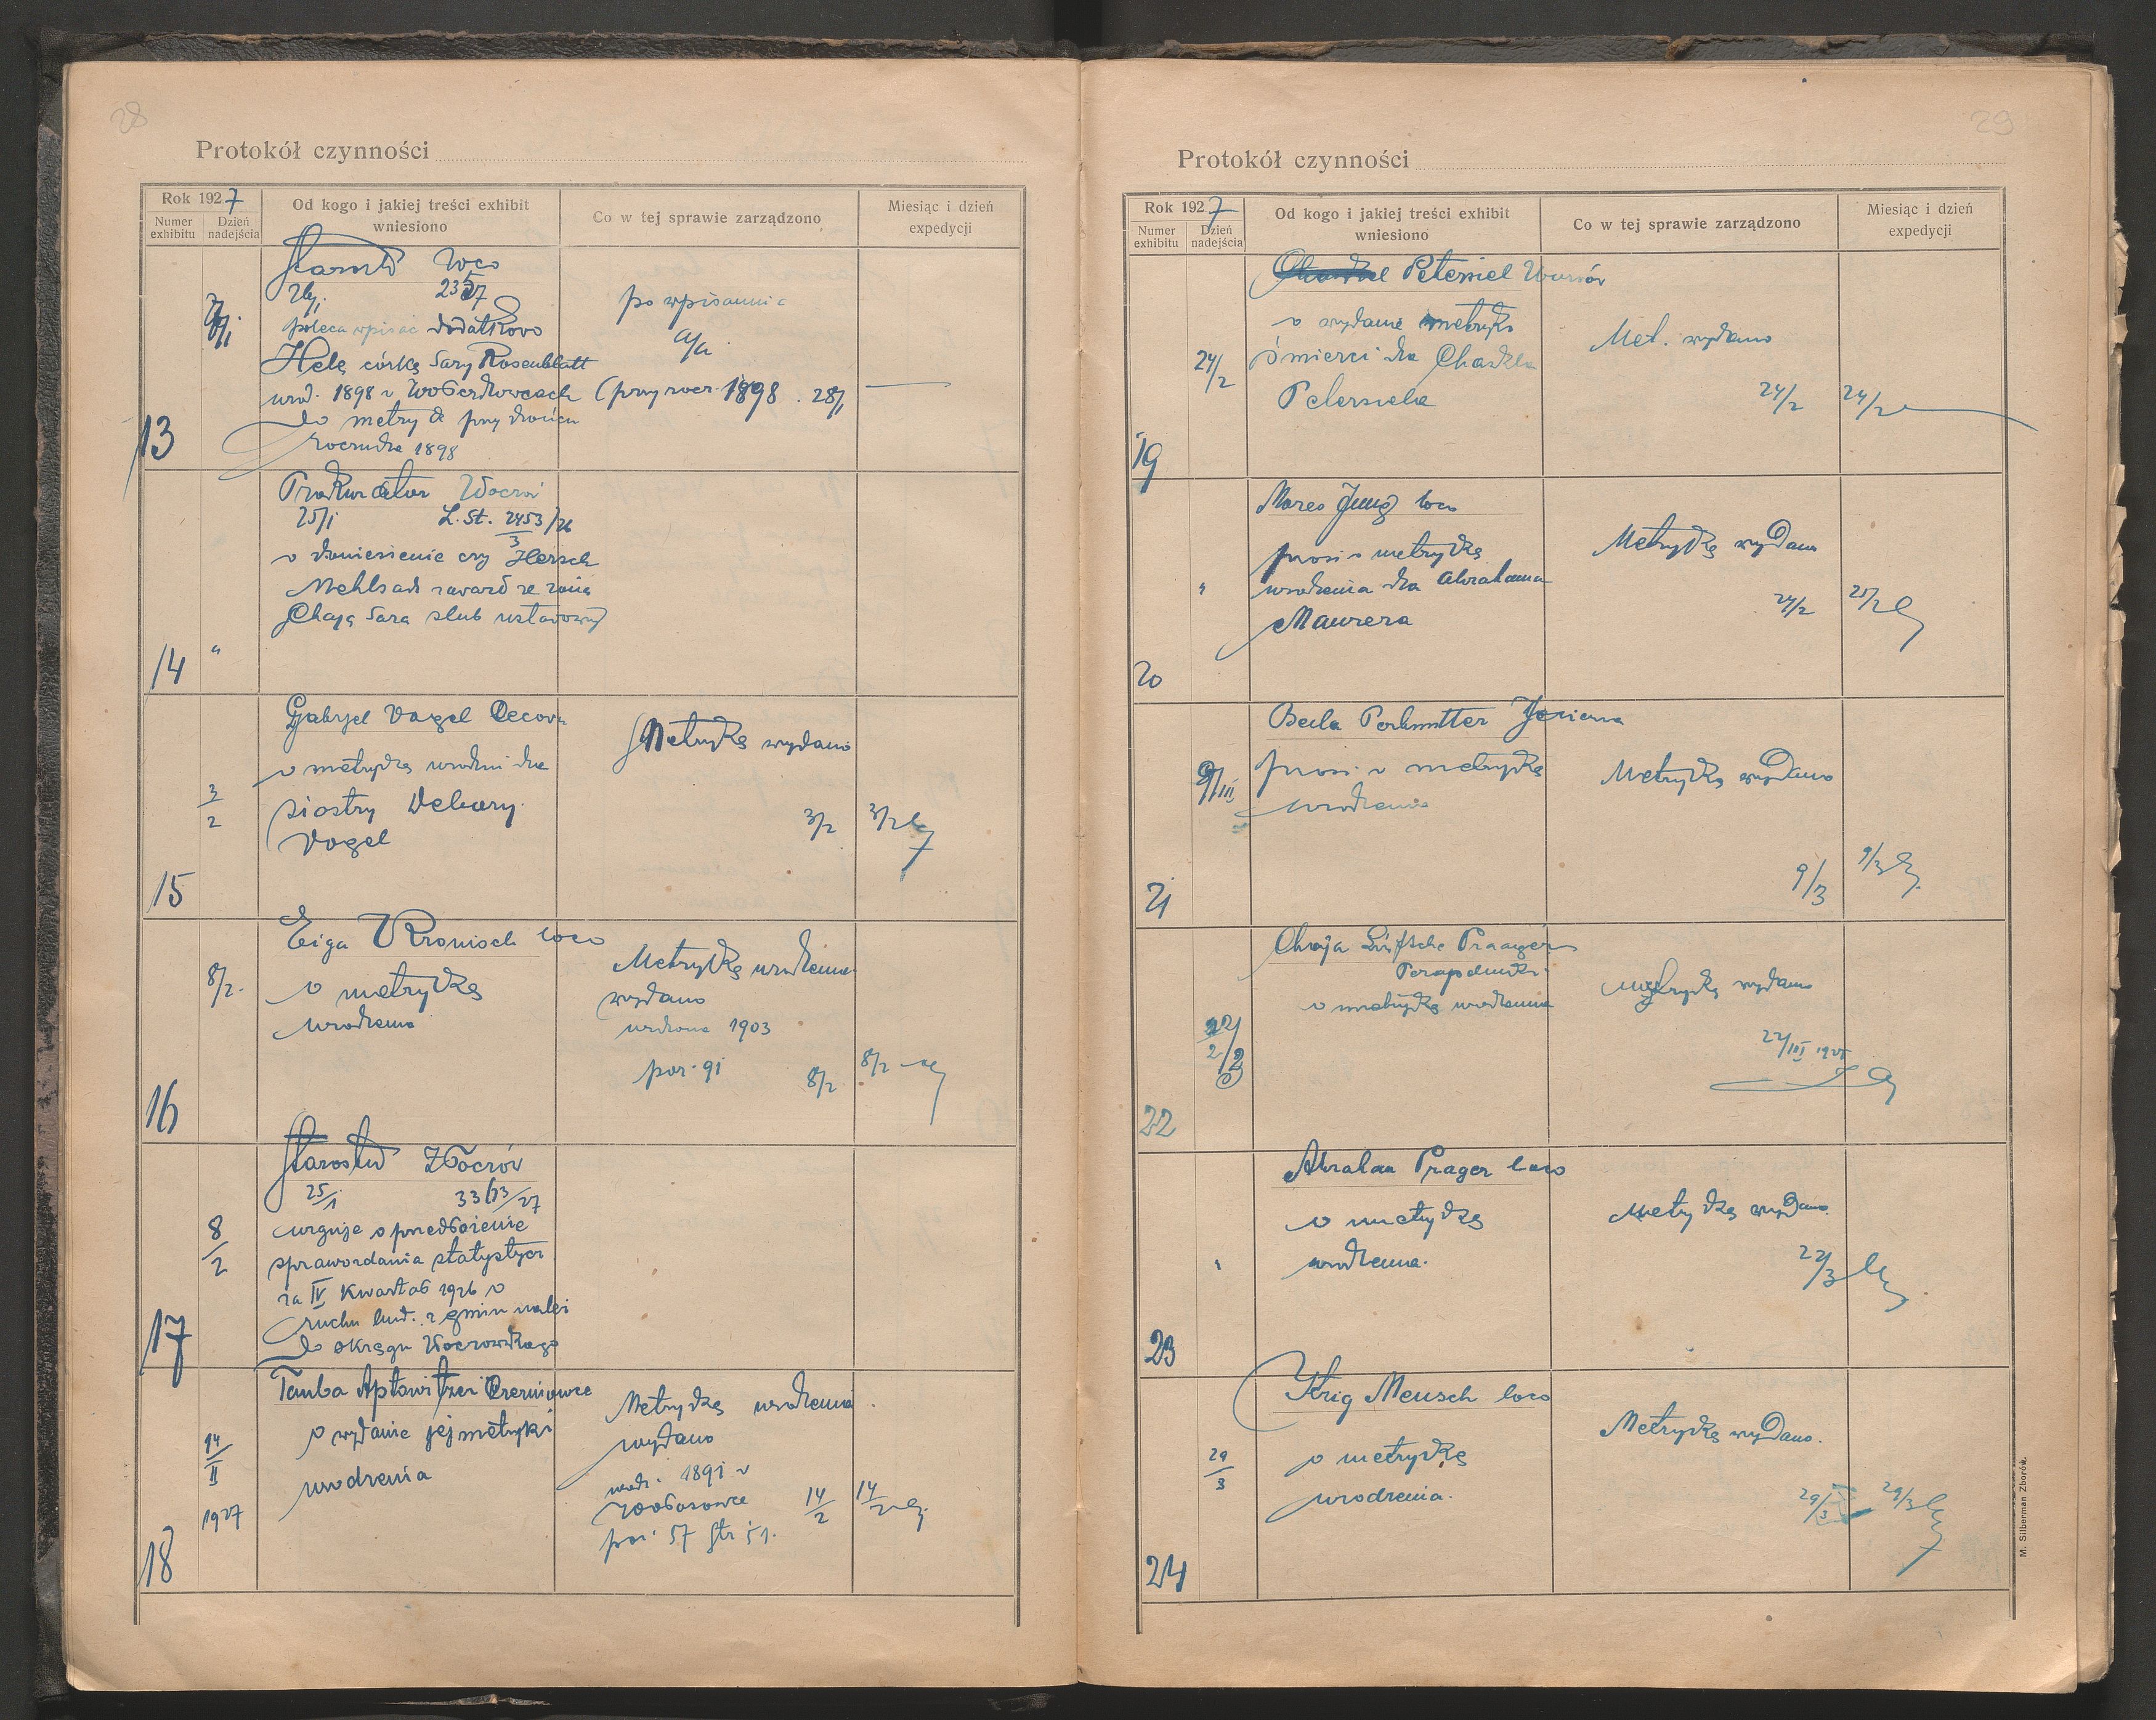 28
Protokół czynności
Rok 1927
Numer exhibitu
Dzień nadejścia
Od kogo i jakiej treści exhibit wniesiono
Co w tej sprawie zarządzono
Miesiąc i dzień expedycji
13
Starostwo loco
poleca wpisać dodatkowo
Helę córkę Sary Rosenblatt
urod. 1898 w
do metryk przy końcu
rocznika 1898
po wpisaniu
a/a
(przy rocz. 1898 . 28/1
14
"
Prokurator Złoczów
25/1 L. St. 2453/26
3
o doniesienie czy Hersch
zawarł ze żoną
Chają Sarą ślub ustawowy
15
3/2
Gabryel Vogel
o metrykę urodzin dla
siostry Debory
Vogel
Metrykę wydano
3/2
3/2
16
8/2.
Eiga Kronisch loco
o metrykę
urodzenia
Metrykę urodzenia
wydano
urodzona 1903
poz. 91
8/2
8/2
17
8/2
Starostwo Złoczów
25/1
urguje o przedłożenie
sprawozdania statystycz
za IV kwartał 1926 o
ruchu lud. z gmin należ
do okręgu Złoczowskiego
18
14/II
1927
Tauba Aptowitzer Czerniowce
o wydanie jej metryki
urodzenia
Metrykę urodzenia
wydano
urodz. 1891 w
poz. 57 str 51.
14/2
14/2
29
Protokół czynności
Rok 1927
Numer exhibitu
Dzień nadejścia
Od kogo i jakiej treści exhibit wniesiono
Co w tej sprawie zarządzono
Miesiąc i dzień expedycji
19
24/2
Petersiel
o wydanie metryki
śmierci dla Chaskla
Petersiela
Met. wydano
24/2
24/2
20
"
Mozes Jung loco
prosi o metrykę
urodzenia dla Abrahama
Maurera
Metrykę wydano
24/2
25/2
21
9/III
Beila Perlmutter Jezierna
prosi o metrykę
urodzenia
Metrykę wydano
9/3
9/3
22
Chaja Prager
o metrykę urodzenia
Metrykę wydano
22/III
23
"
Abraham Prager loco
o metrykę
urodzenia.
Metrykę wydano.
22/3
24
29/3
Mensch loco
o metrykę
urodzenia.
Metrykę wydano.
29/3
29/3
M. Silberman Zborów.